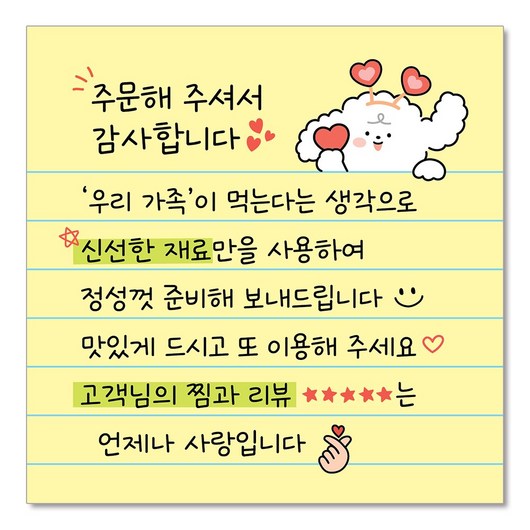 주문해 주셔서
감사합니다
‘우리 가족’이 먹는다는 생각으로
신선한 재료만을 사용하여
정성껏 준비해 보내드립니다
맛있게 드시고 또 이용해 주세요♡
고객님의 찜과 리뷰 ★★★★★는
언제나 사랑입니다